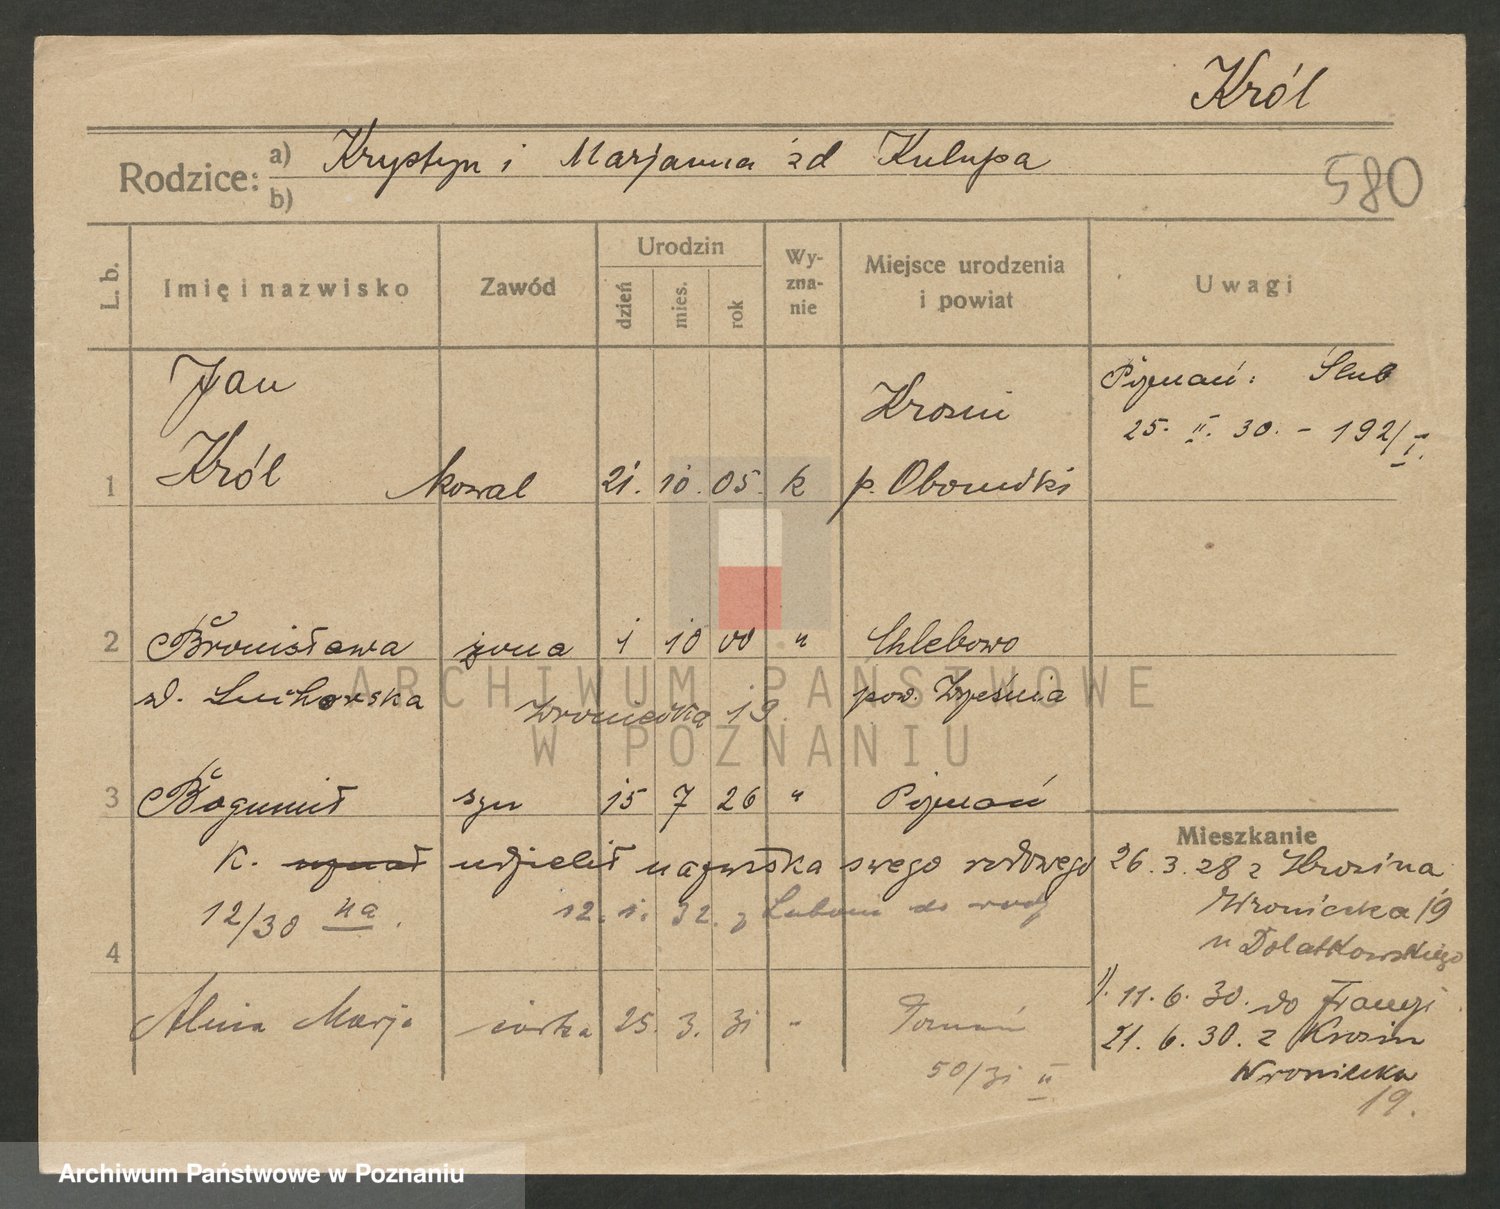 Król
Rodzice: a) Krystyn i Marjanna zd Kulupa
b)
580
L. b.
Imię i nazwisko
Zawód
Urodzin
dzień
mies.
rok
Wy-
zna-
nie
Miejsce urodzenia
i powiat
Uwagi
Jan
Król
1
kowal
21. 10. 05. k
Krosin
p. Oborniki
Poznań: Ślub
25. II. 30. - 192/I.
2 Bronisława żona 1 10 00 " Chlebowo
zd. Suchorska
pow. Września
Wroniecka 19.
3 Bogumił syn 15 7 26 " Poznań
K. uznał udzielił nazwiska swego rodowego
12/30 na.
12. 1. 32. z Lubonia do
4
Alicia Marja córka 25. 3. 31 " Poznań
50/31 II
Mieszkanie
26. 3. 28 z Krosina
Wroniecka 19
u Dolatkowskiego
1). 11. 6. 30. do Francji
21. 6. 30. z Krosin
Wroniecka
19.
ARCHIWUM PAŃSTWOWE
W POZNANIU
Archiwum Państwowe w Poznaniu